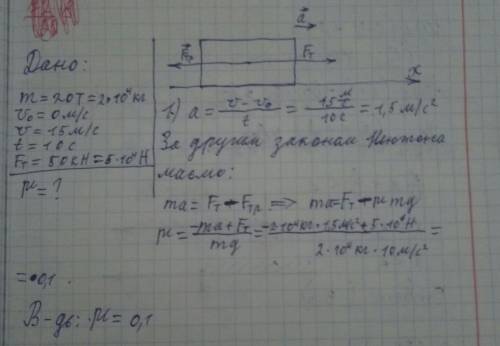 Дано:
m = 20т = 2•10⁴ кг
v₀ = 0 м/с
v = 15 м/с
t = 10 с
Fт = 50 кН = 5•10⁴ Н
μ = ?
a⃗
Fтр Fт
x
a = (v - v₀)/t = (15 м/с)/(10 с) = 1,5 м/с²
За другим законом Ньютона
маємо:
ma = Fт - Fтр => ma = Fт - μmg
μ = (-ma + Fт)/(mg) = (-2•10⁴ кг • 1,5 м/с² + 5•10⁴ Н)/(2•10⁴ кг • 10 м/с²) =
= 0,1
В-дь: μ = 0,1